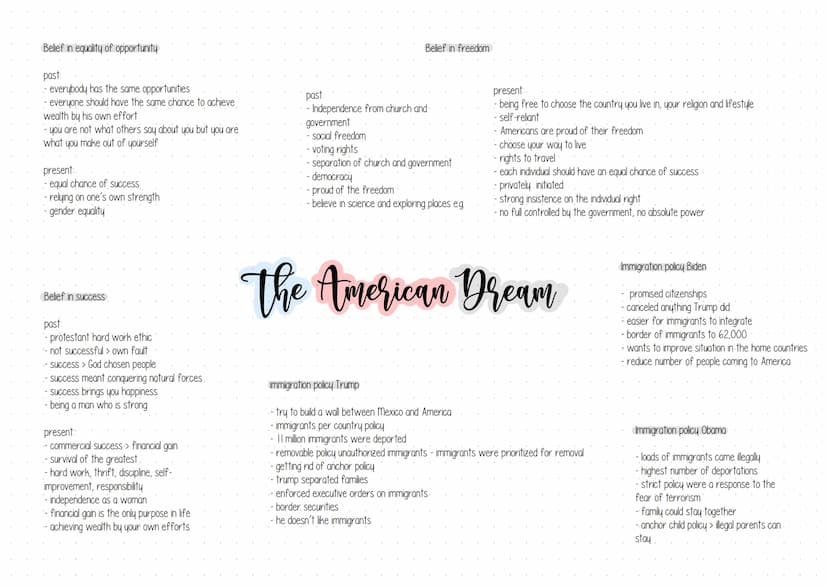 Belief in equality of opportunity
past:
- everybody has the same opportunities
- everyone should have the same chance to achieve
wealth by his own effort
- you are not what others say about you but you are
what you make out of yourself
present:
- equal chance of success
- relying on one's own strength
- gender equality
Belief in freedom
past
- Independence from church and
government
- social freedom
- voting rights
- separation of church and government
- democracy
- proud of the freedom
- believe in science and exploring places e.g.
present:
- being free to choose the country you live in, your religion and lifestyle
- self-reliant
- Americans are proud of their freedom
- choose your way to live
- rights to travel
- each individual should have an equal chance of success
- privately initiated
- strong insistence on the individual right
- no full controlled by the government, no absolute power
The American Dream
Belief in success
past:
- protestant hard work ethic
- not successful > own fault
- success > God chosen people
- success meant conquering natural forces
- success brings you happiness
- being a man who is strong
present:
- commercial success > financial gain
- survival of the greatest
- hard work, thrift, discipline, self-
improvement, responsibility
- independence as a woman
- financial gain is the only purpose in life
- achieving wealth by your own efforts
immigration policy Trump
- try to build a wall between Mexico and America
- immigrants per country policy
- 11 million immigrants were deported
- removable policy unauthorized immigrants - immigrants were prioritized for removal
- getting rid of anchor policy
- trump separated families
- enforced executive orders on immigrants
- border securities
- he doesn't like immigrants
Immigration policy Biden
- promised citizenships
- canceled anything Trump did
- easier for immigrants to integrate
- border of immigrants to 62,000
- wants to improve situation in the home countries
- reduce number of people coming to America
Immigration policy Obama
- loads of immigrants came illegally
- highest number of deportations
- strict policy were a response to the
fear of terrorism
- family could stay together
- anchor child policy > illegal parents can
stay